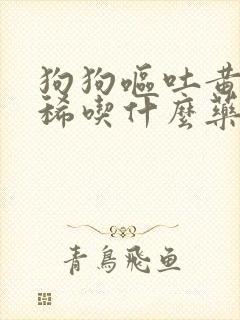 狗狗嘔吐黃
稀喫什麼藥
青鳥飛魚